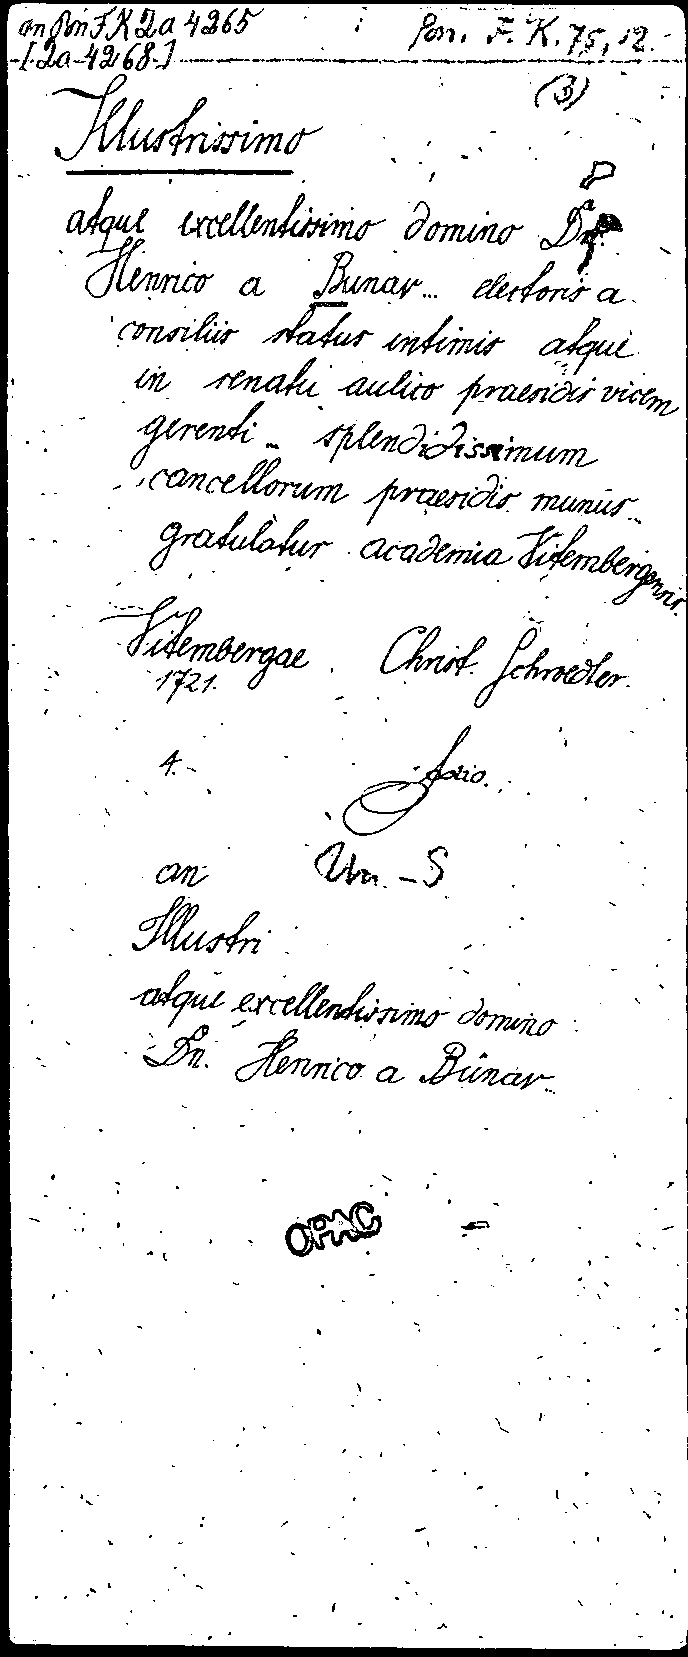 an Pon F K 2a 4265
[2a 4268]
Pon. F. K. 75, 12.
(3)
Illustrissimo
atque excellentissimo domino Dn.
Henrico a Bunav... electoris a
consiliis status intimis atque
in senatu aulico praesidis vicem
gerenti... splendidissimum
cancellorum praesidis munus...
gratulatur academia Vitembergensis.
Vitembergae Christ. Schroedter.
1721.
4.
an Un - S
Illustri
atque excellentissimo domino
Dn. Henrico a Bünav...
OPAC